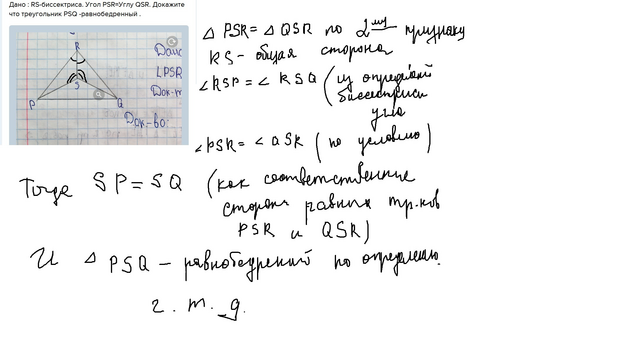 Дано : RS-биссектриса. Угол PSR=Углу QSR. Докажите
что треугольник PSQ -равнобедренный .
R
S
P
Q
Дано
∠PSR
Док-т
Док-во:
△ PSR = △ QSR по 2му признаку
RS - общая сторона
∠RSP = ∠ RSQ (из определений
биссектрисы
угла
∠PSR = ∠ QSR (по условию)
Тогда SP = SQ (как соответственные
стороны равных тр.ков
PSR и QSR)
И △ PSQ - равнобедрений по определению.
ч. т. д.